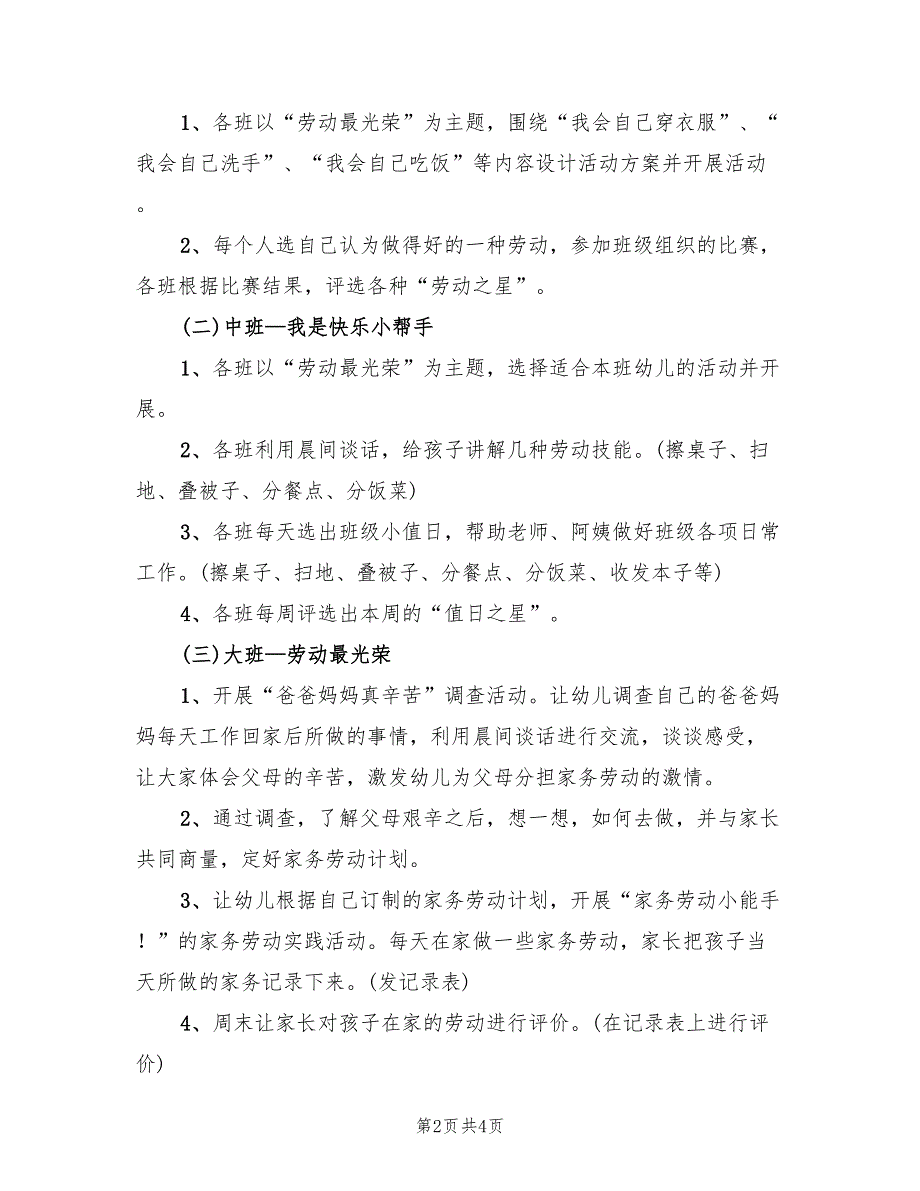 1、各班以“劳动最光荣”为主题，围绕“我会自己穿衣服”、“
我会自己洗手”、“我会自己吃饭”等内容设计活动方案并开展活动
。
2、每个人选自己认为做得好的一种劳动，参加班级组织的比赛，
各班根据比赛结果，评选各种“劳动之星”。
(二)中班—我是快乐小帮手
1、各班以“劳动最光荣”为主题，选择适合本班幼儿的活动并开
展。
2、各班利用晨间谈话，给孩子讲解几种劳动技能。(擦桌子、扫
地、叠被子、分餐点、分饭菜)
3、各班每天选出班级小值日，帮助老师、阿姨做好班级各项日常
工作。(擦桌子、扫地、叠被子、分餐点、分饭菜、收发本子等)
4、各班每周评选出本周的“值日之星”。
(三)大班—劳动最光荣
1、开展“爸爸妈妈真辛苦”调查活动。让幼儿调查自己的爸爸妈
妈每天工作回家后所做的事情，利用晨间谈话进行交流，谈谈感受，
让大家体会父母的辛苦，激发幼儿为父母分担家务劳动的激情。
2、通过调查，了解父母艰辛之后，想一想，如何去做，并与家长
共同商量，定好家务劳动计划。
3、让幼儿根据自己订制的家务劳动计划，开展“家务劳动小能手
！”的家务劳动实践活动。每天在家做一些家务劳动，家长把孩子当
天所做的家务记录下来。(发记录表)
4、周末让家长对孩子在家的劳动进行评价。(在记录表上进行评
价)
第2页共4页